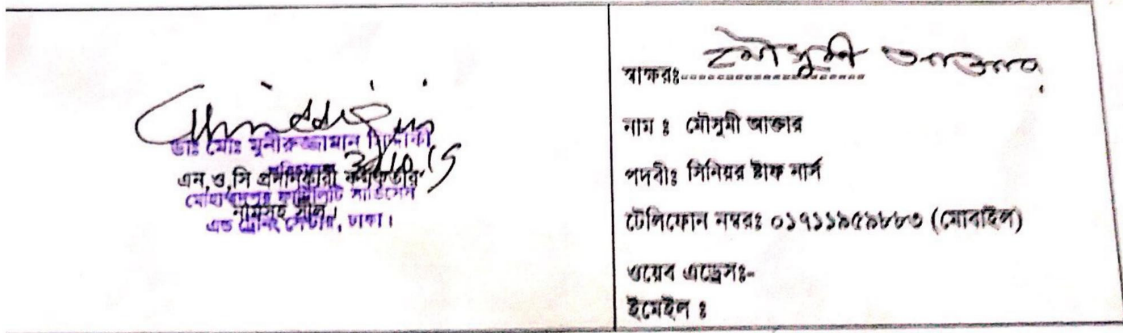 ডাঃ মোঃ মুনীরুজ্জামান সিদ্দিকী
এন,ও,সি প্রদানকারী কর্মকর্তার
মোহাম্মদপুর ফার্টিলিটি সার্ভিসেস
নামসহ সীল।
এন্ড ট্রেনিং সেন্টার, ঢাকা।
স্বাক্ষরঃ মৌসুমী আক্তার
নাম ঃ মৌসুমী আক্তার
পদবীঃ সিনিয়র ষ্টাফ নার্স
টেলিফোন নম্বরঃ ০১৭১১৯৫৯৮৮৩ (মোবাইল)
ওয়েব এড্রেসঃ-
ইমেইল ঃ